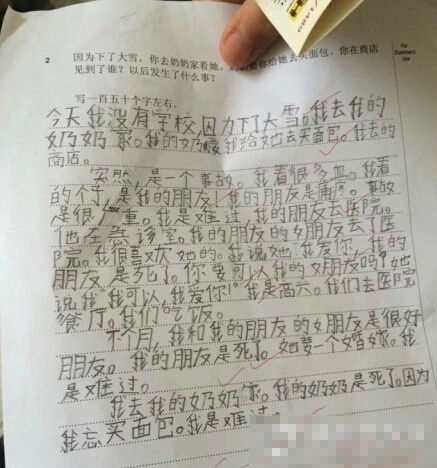 2 因为下了大雪，你去奶奶家看她。奶奶要你给她去买面包，你在商店
见到了谁？以后发生了什么事？
写一百五十个字左右。
For
Examiner's
Use
今天我没有学校，因为下了大雪。我去我的
奶奶家。我的奶奶要我给她去买面包。我去的
商店。
突然，是一个事故。我看很多血。我看
的个，是我的朋友！我的朋友是 事故
是很严重。我是难过。我的朋友去医院。
他在 诊室。我的朋友的女朋友去了医
院。我很喜欢她的。我说她“我爱你，我的
朋友是死了。你 可以我的女朋友吗？”她
说“我可以，我爱你！”我是高兴。我们去医院
餐厅。我们吃饭。
个月，我和我的朋友的女朋友是很好
朋友。我的朋友是死了。她要一个婚嫁。我
是难过。
我去我的奶奶家。我的奶奶是死了。因为
我忘买面包。我是难过。